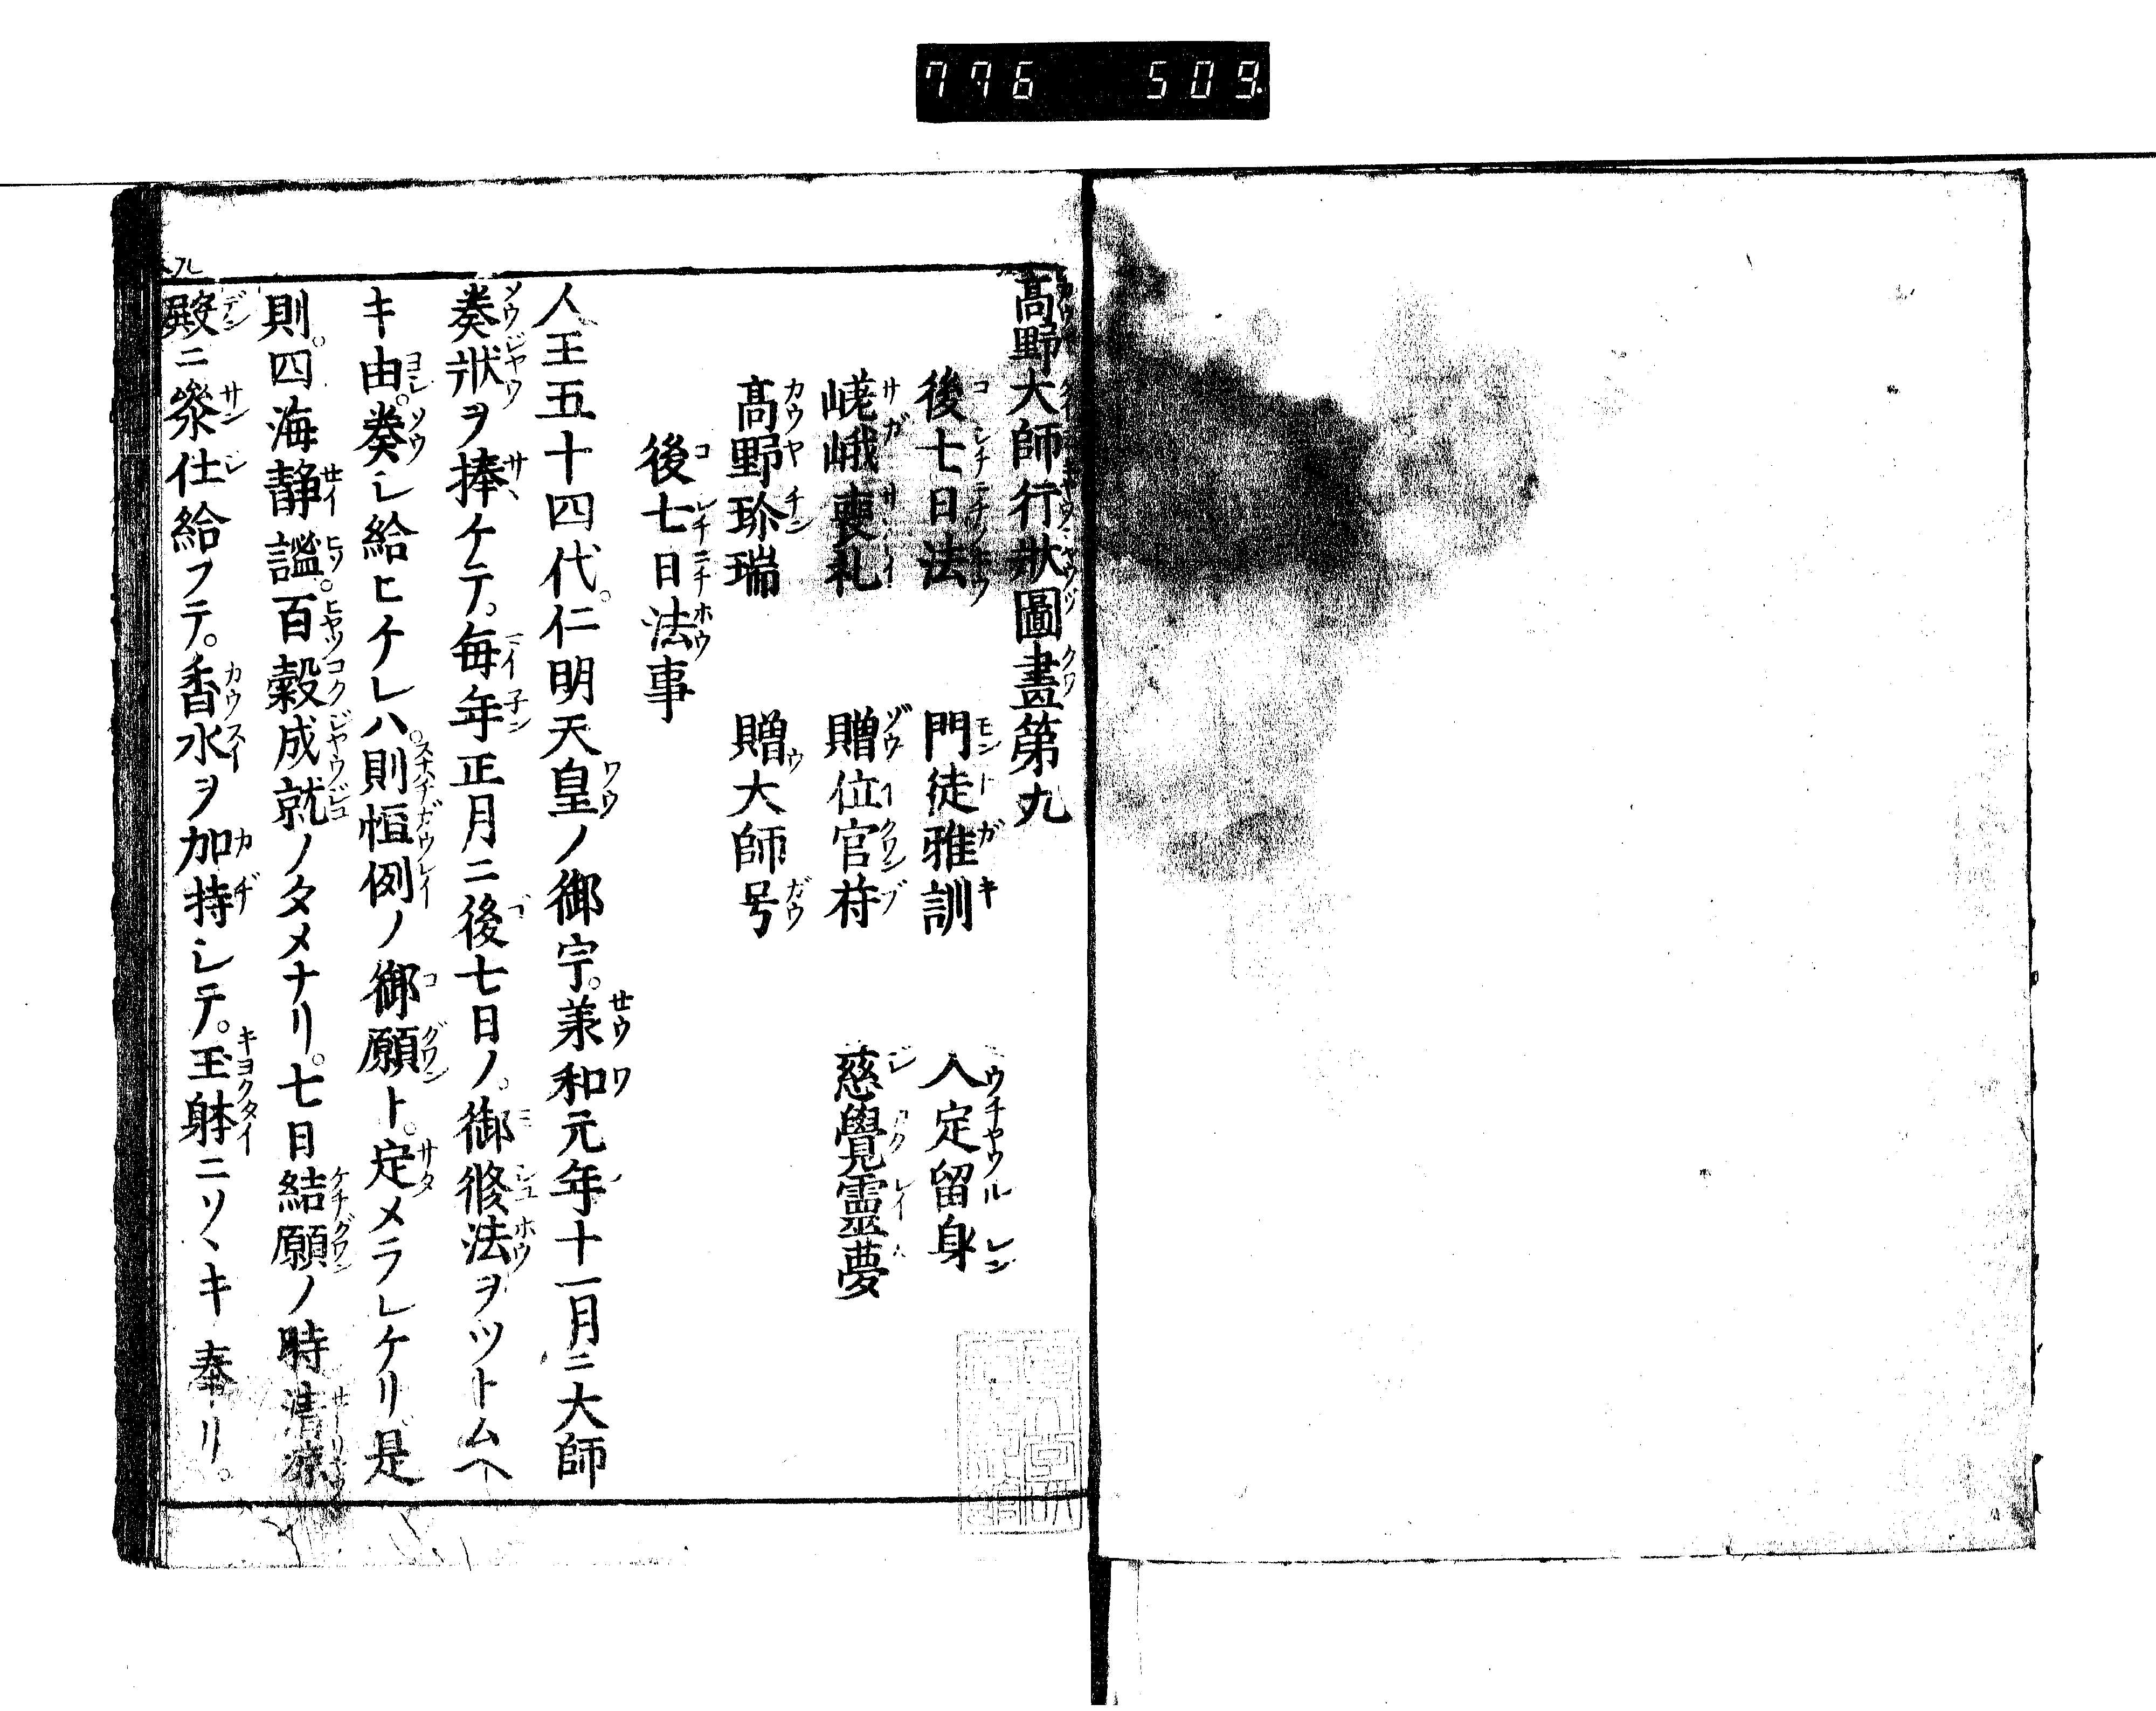 776 509
高野大師行状圖畫第九
後七日法 門徒雅訓 入定留身
嵯峨喪礼 贈位官符 慈覺霊夢
高野珍瑞 贈大師号
後七日法事
人王五十四代。仁明天皇ノ御宇。兼和元年十一月ニ大師
奏状ヲ捧ケテ。毎年正月ニ後七日ノ。御修法ヲツトムヘ
キ由。奏シ給ヒケレハ。則恒例ノ御願ト。定メラレケリ是
則。四海静謐。百穀成就ノタメナリ。七日結願ノ時清涼
殿ニ参仕給フテ。香水ヲ加持シテ。玉躰ニソヽキ奉リ。
九